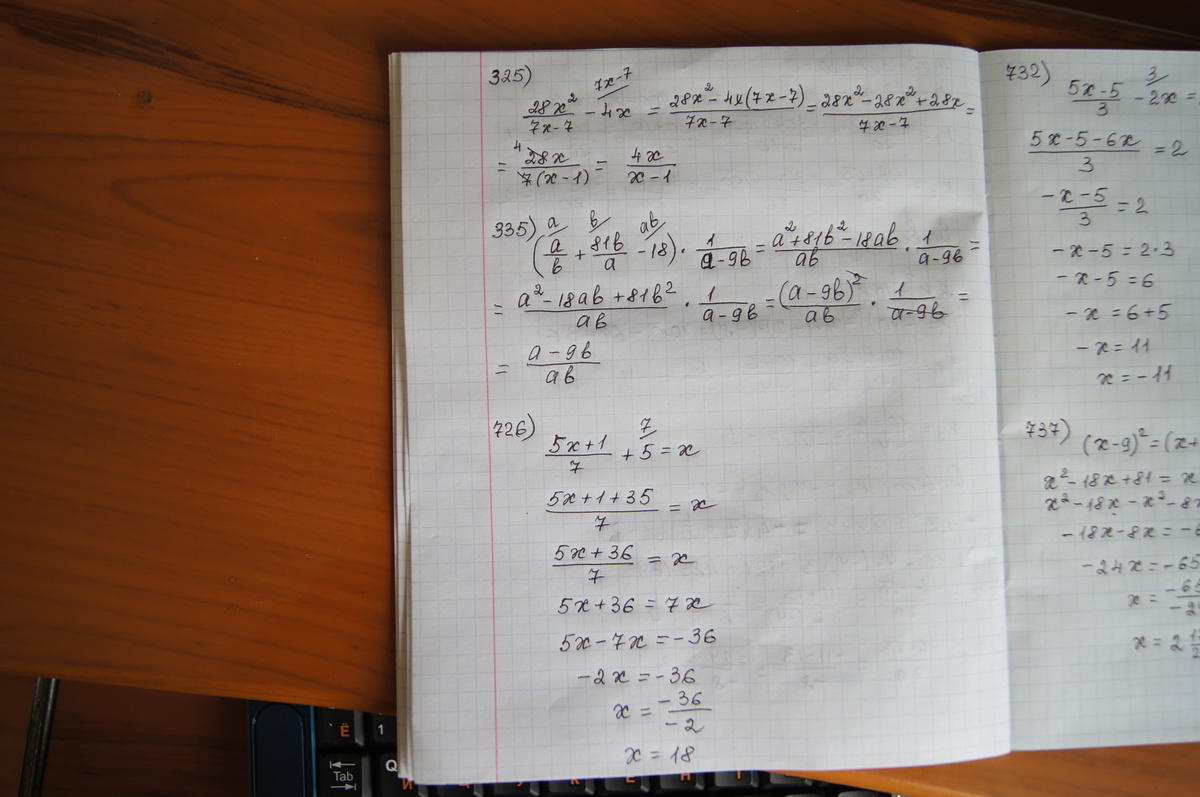 325)
7x-7
28x²/7x-7 - 4x = 28x² - 4x(7x-7)/7x-7 = 28x² - 28x² + 28x/7x-7 =
= 4 28x/7(x-1) = 4x/x-1
335) a b ab
(a/b + 81b/a - 18) · 1/a-9b = a² + 81b² - 18ab/ab · 1/a-9b =
= a² - 18ab + 81b²/ab · 1/a-9b = (a-9b)²/ab · 1/a-9b =
= a-9b/ab
726) 7
5x+1/7 + 5 = x
5x+1+35/7 = x
5x+36/7 = x
5x+36 = 7x
5x-7x = -36
-2x = -36
x = -36/-2
x = 18
732) 3
5x-5/3 - 2x =
5x-5-6x/3 = 2
-x-5/3 = 2
-x-5 = 2·3
-x-5 = 6
-x = 6+5
-x = 11
x = -11
737)
(x-9)² = (x+
x² - 18x + 81 = x
x² - 18x - x² - 8x
-18x - 8x = -
-24x = -65
x = -65/-2
x = 2
Ё
1
Tab
Q
Й